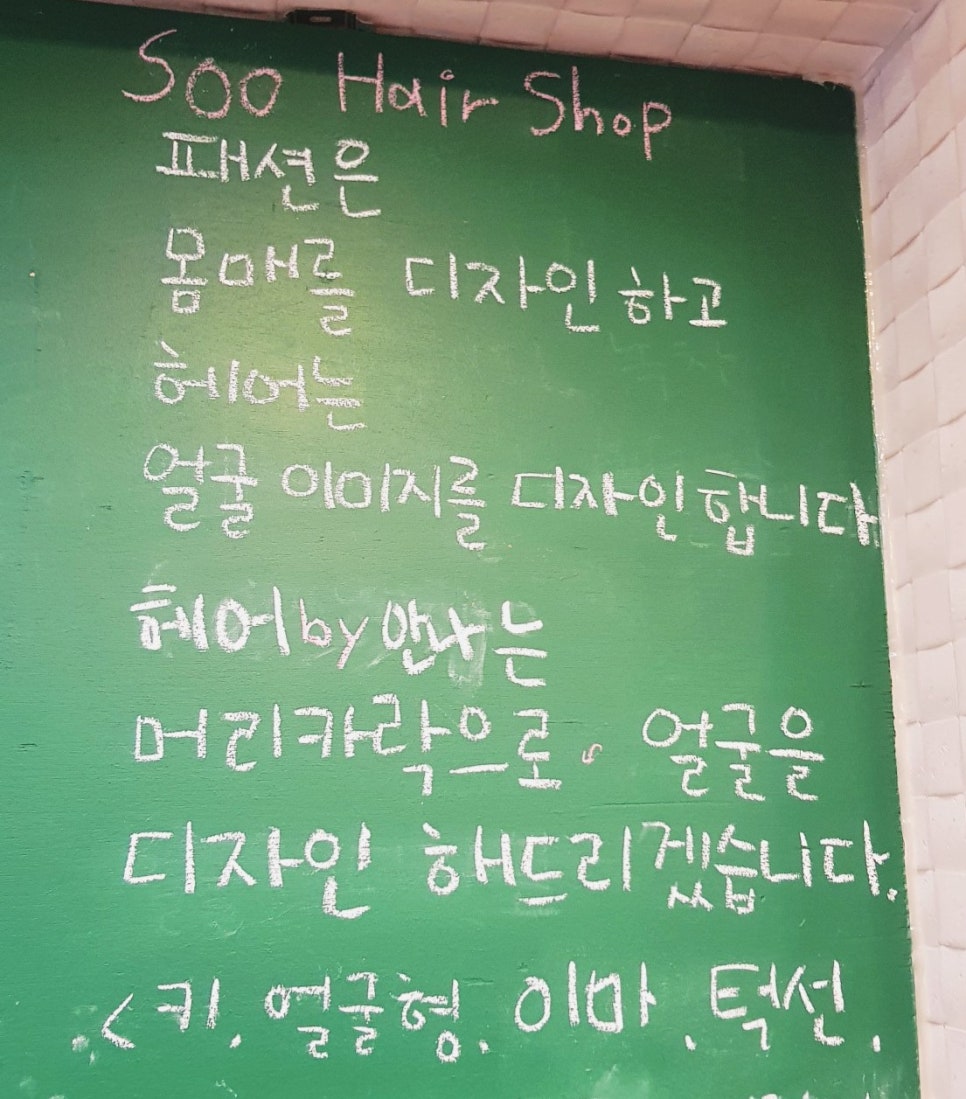 Soo Hair Shop
패션은
몸매를 디자인하고
헤어는
얼굴 이미지를 디자인합니다
헤어by안나는
머리카락으로 얼굴을
디자인 해드리겠습니다.
<키. 얼굴형. 이마. 턱선.